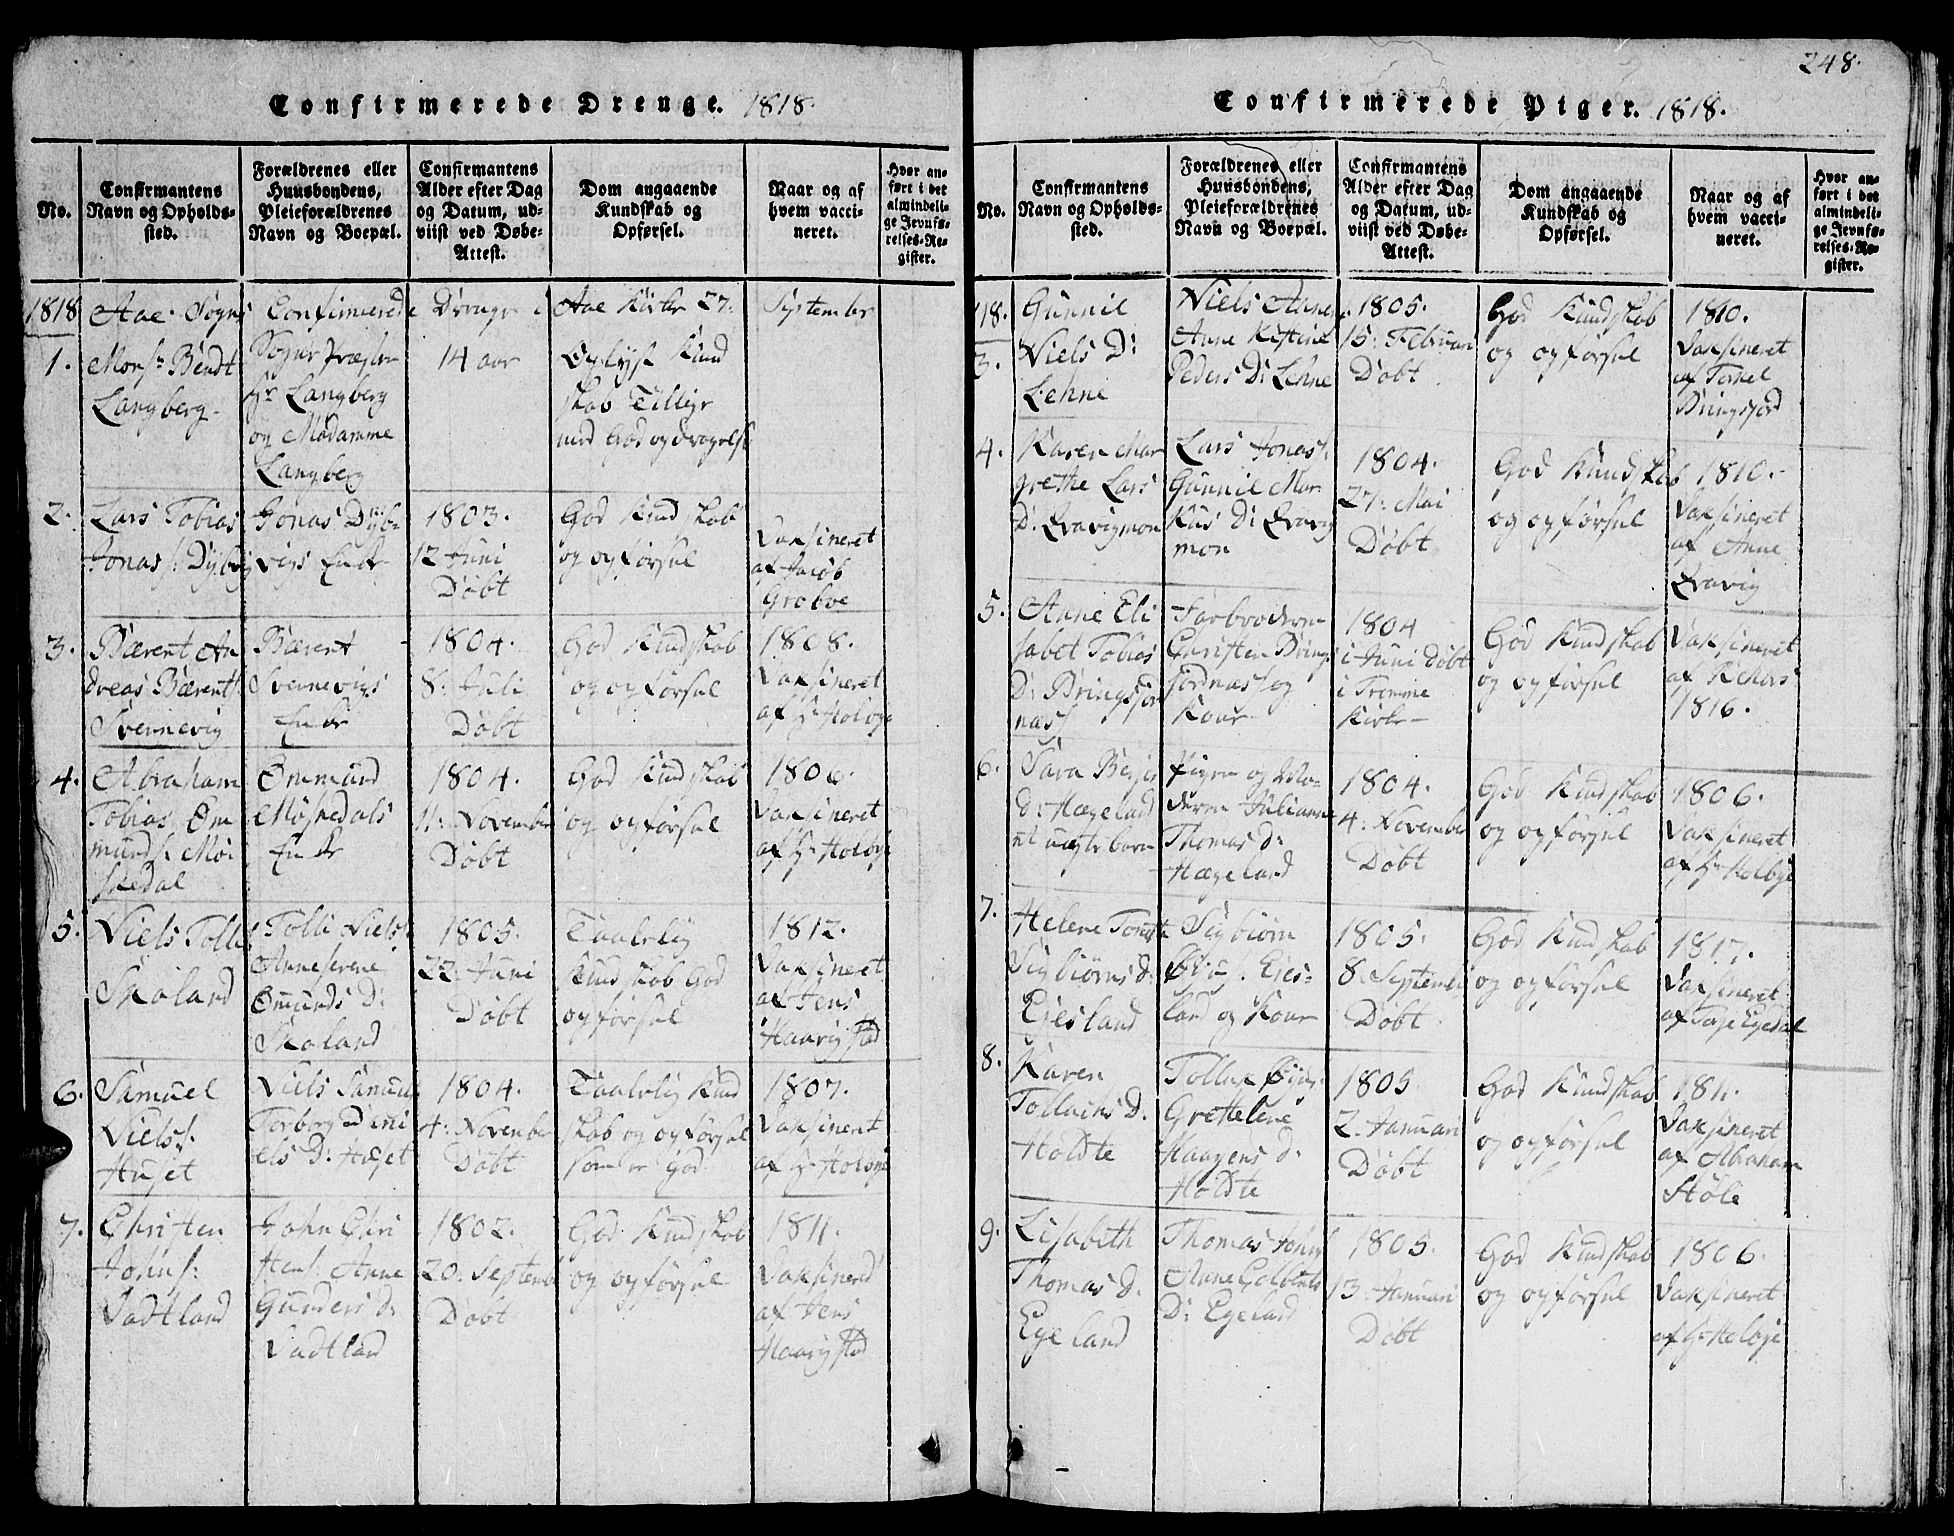 Confirmerede Drenge. 1818.
No.
Confirmantens
Navn og Opholds-
sted.
Forældrenes eller
Huusbondens,
Pleieforældrenes
Navn og Boepæl.
Confirmantens
Alder efter Dag
og Datum, ud-
viist ved Døbe-
Attest.
Dom angaaende
Kundskab og
Opførsel.
Naar og af
hvem vacci-
neret.
Hvor an-
ført i det
almindeli-
ge Jevnfø-
relses-Re-
gister.
1818 Aae Sogns Confirmerede Drenge i Aae Kirke 27: September
1.
Mons: Bendt
Langberg
Sogne Præsten
Hr Langberg
og Madamme
Langberg
14 aar
Oplyst Kund
skab Tillige
med God opdragelse
2.
Lars Tobias
Jonas s: Dybvig
Jonas Dyb-
vigs Enke
1803.
12 Juni
Døbt
God Kundskab
og opførsel
Vaksineret
af Jacob
Grobve
3.
Bærent An
dreas Bærents
Svennevig
Bærent
Svennevigs
Enke
1804.
8: Juli
Døbt
God Kundskab
og opførsel
1808.
Vaksineret
af Hr Holbye
4.
Abraham
Tobias Om
munds: Mø
skedal
Ommund
Møskedals
Enke
1804.
11: November
Døbt
God Kundskab
og opførsel
1806.
Vaksineret
af Hr Holbye
5.
Niels Tollis
Skaland
Tolli Niels:
Anneserene
Omunds D:
Skaland
1805.
22: Juni
Døbt
Taalelig
Kundskab God
opførsel
1812.
Vaksineret
af Jens
Haarigstad
6.
Samuel
Niels s:
Huset
Niels Samuels
Torborg Dini
els D: Huset
1804.
4: November
Døbt
Taalelig Kund
skab og opførsel
som er God
1807.
Vaksineret
af Hr Holbye
7.
Christen
Johns:
Vadtland
John Chri
stens: Anne
Gunders D:
Vadtland
1802.
20: September
Døbt
God Kundskab
og opførsel
1811.
Vaksinered
af Jens
Haarigstad
248.
Confirmerede Piger. 1818.
No.
Confirmantens
Navn og Opholds-
sted.
Forældrenes eller
Huusbondens,
Pleieforældrenes
Navn og Boepæl.
Confirmantens
Alder efter Dag
og Datum, ud-
viist ved Døbe-
Attest.
Dom angaaende
Kundskab og
Opførsel.
Naar og af
hvem vacci-
neret.
Hvor an-
ført i det
almindeli-
ge Jevnfø-
relses-Re-
gister.
18.
3.
Gunnil
Niels D:
Lehne
Niels
Anne Kistine
Peders D: Lehne
1805.
15: Februari
Døbt
God Kundskab
og opførsel
1810.
Vaksineret
af Tornel
Bringsjord
4.
Karen Mar
grethe Lars
D: Qvavigmon
Lars Jonas:
Gunnil Mar
kus D: Qvavig
mon
1804.
27: Mai
Døbt
God Kundskab
og opførsel
1810.
Vaksineret
af Anne
Qvavig
5.
Anne Eli
sabet Tobias
D: Bringsjor
næss
Farbroderen
Christen Brings
jordnæs og
Kone
1804
i Juni døbt
i Tromme
Kirke
God Kundskab
og opførsel
Vaksineret
af
1816.
6.
Sara Berjes
d: Hægeland
et uægte barn
Pigen og Mo-
deren Julianne
Thomas d:
Hægeland
1804.
4: November
Døbt
God Kundskab
og opførsel
1806.
Vaksineret
af Hr Holbye
7.
Helene Tonete
Sigbiørns d:
Eiesland
Sigbiørn
Eies-
land og Kone
1805.
8: September
Døbt
God Kundskab
og opførsel
1817.
Vaksineret
af Tarje Egedal
8.
Karen
Tollachs d:
Holdte
Tollak
Grettelene
Haagens d:
Holdte
1805
2: Januari
Døbt
God Kundskab
og opførsel
1811.
Vaksineret
af Abraham
Støle
9.
Lisabeth
Thomas d:
Egeland
Thomas Johns
Anne
D: Egeland
1805.
13: Januari
Døbt
God Kundskab
og opførsel
1806.
Vaksineret
af Hr Holbye